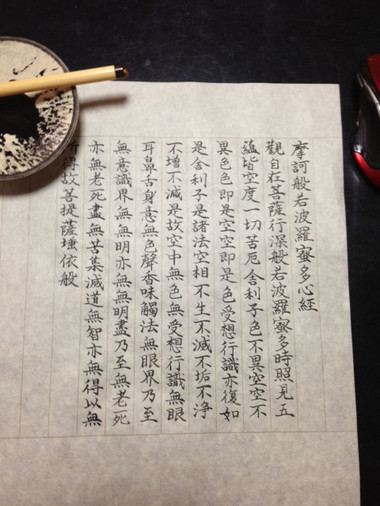 摩訶般若波羅蜜多心經
觀自在菩薩行深般若波羅蜜多時照見五
蘊皆空度一切苦厄舍利子色不異空空不
異色色即是空空即是色受想行識亦復如
是舍利子是諸法空相不生不滅不垢不浄
不增不減是故空中無色無受想行識無眼
耳鼻舌身意無色聲香味觸法無眼界乃至
無意識界無無明亦無無明盡乃至無老死
亦無老死盡無苦集滅道無智亦無得以無
所得故菩提薩埵依般